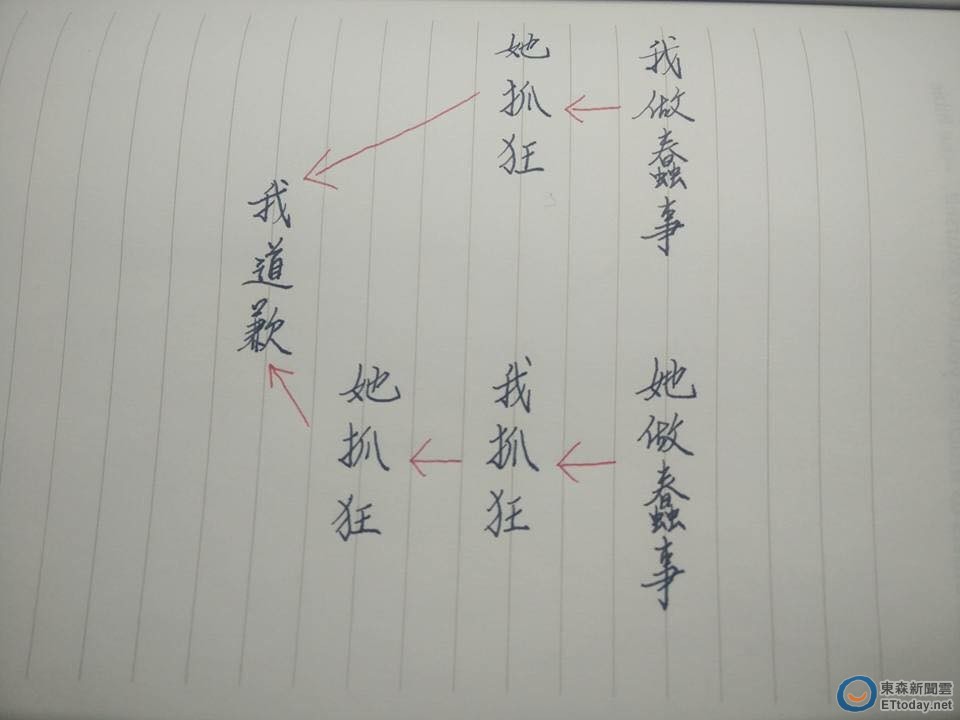 我做蠢事
她抓狂
她做蠢事
我抓狂
她抓狂
我道歉
東森新聞雲
ETtoday.net